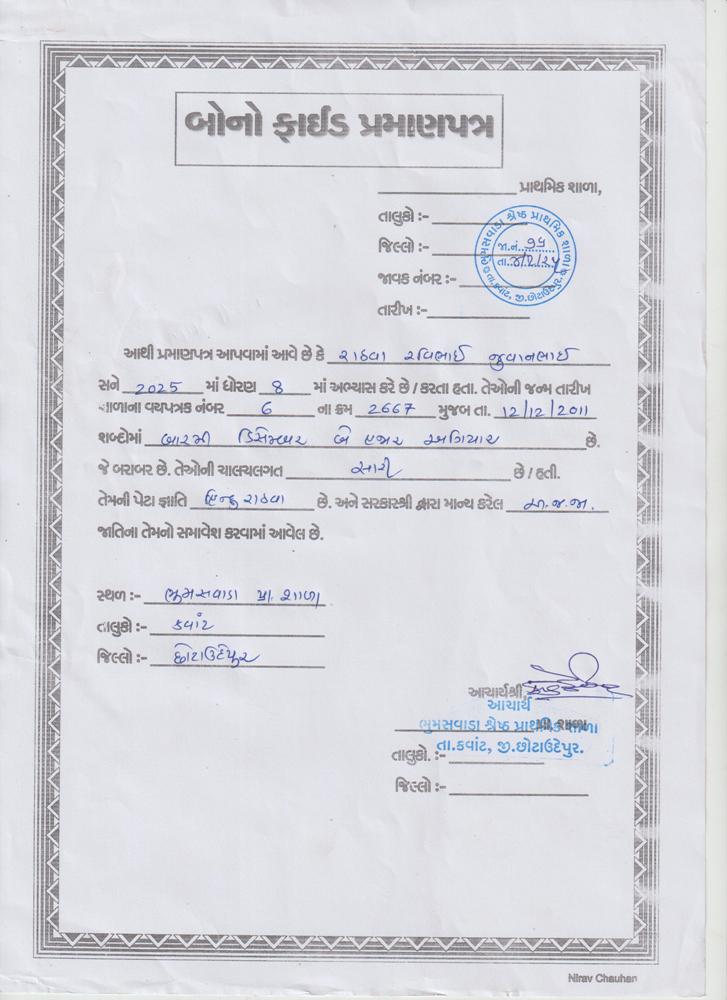 બોનો ફાઈડ પ્રમાણપત્ર
પ્રાથમિક શાળા,
તાલુકો :-
જિલ્લો :-
જાવક નંબર :-
તારીખ :-
ભુમસવાડા શ્રેષ્ઠ પ્રાથમિક શાળા
જા.નં. ૧૫
તા.
તા.કવાંટ, જી.છોટાઉદેપુર
આથી પ્રમાણપત્ર આપવામાં આવે છે કે રાઠવા રવિભાઈ જુવાનભાઈ
સને 2025 માં ધોરણ 8 માં અભ્યાસ કરે છે / કરતા હતા. તેઓની જન્મ તારીખ
શાળાના વયપત્રક નંબર 6 ના ક્રમ 2667 મુજબ તા. 12/12/2011
શબ્દોમાં બારમી ડિસેમ્બર બે હજાર અગિયાર છે.
જે બરાબર છે. તેઓની ચાલચલગત સારી છે / હતી.
તેમની પેટા જ્ઞાતિ હિન્દુ રાઠવા છે. અને સરકારશ્રી દ્વારા માન્ય કરેલ અ.જ.જા.
જાતિના તેમનો સમાવેશ કરવામાં આવેલ છે.
સ્થળ :- ભુમસવાડા પ્રા. શાળા
તાલુકો :- કવાંટ
જિલ્લો :- છોટાઉદેપુર
આચાર્યશ્રી,
આચાર્ય
ભુમસવાડા શ્રેષ્ઠ પ્રાથમિક શાળા
પ્રા. શાળા
તા.કવાંટ, જી.છોટાઉદેપુર.
તાલુકો. :-
જિલ્લો :-
Nirav Chauhan